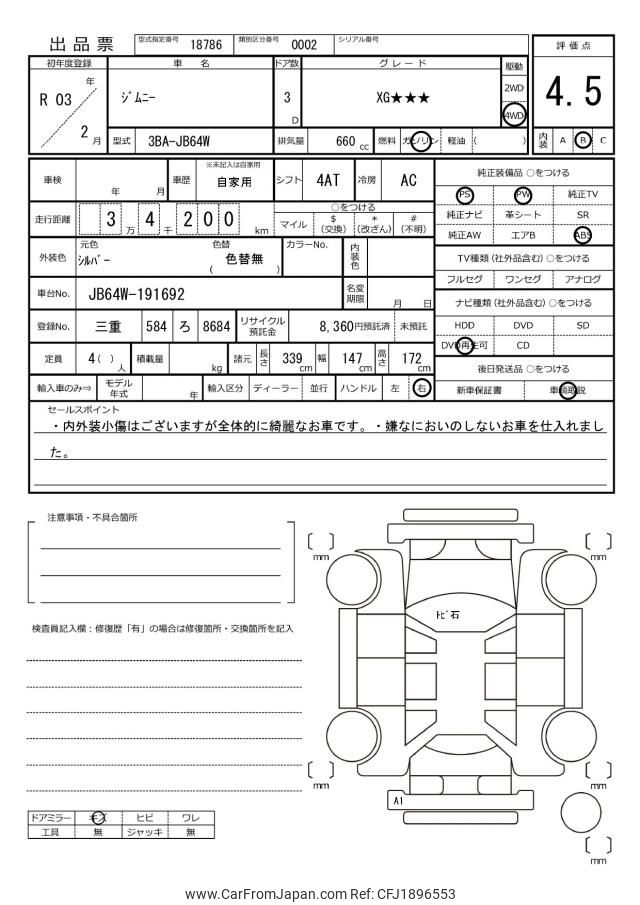 出品票 型式指定番号 18786 類別区分番号 0002 シリアル番号
評価点
4.5
内装 A B C
初年度登録 車名 ドア数 グレード 駆動
R 03 年 2 月 ジムニー 3 D XG★★★ 2WD
4WD
型式 3BA-JB64W 排気量 660 cc 燃料 ガソリン 軽油 ( )
車検 年 月 車歴 ※未記入は自家用 自家用 シフト 4AT 冷房 AC
走行距離 3 万 4 千 2 0 0 km
○をつける
マイル $(交換) *(改ざん) #(不明)
外装色 元色 シルバー 色替 ( 色替無 ) カラーNo. 内装色
車台No. JB64W-191692 名変期限 月 日
登録No. 三重 584 ろ 8684 リサイクル預託金 8,360円預託済 未預託
定員 4( )人 積載量 kg 諸元 長さ 339 cm 幅 147 cm 高さ 172 cm
輸入車のみ⇒ モデル年式 年 輸入区分 ディーラー 並行 ハンドル 左 右
純正装備品 ○をつける
PS PW 純正TV
純正ナビ 革シート SR
純正AW エアB ABS
TV種類(社外品含む)○をつける
フルセグ ワンセグ アナログ
ナビ種類(社外品含む)○をつける
HDD DVD SD
DVD再生可 CD
後日発送品 ○をつける
新車保証書 車輌取説
セールスポイント
・内外装小傷はございますが全体的に綺麗なお車です。・嫌なにおいのしないお車を仕入れまし
た。
注意事項・不具合箇所
検査員記入欄：修復歴「有」の場合は修復箇所・交換箇所を記入
mm
mm
トビ石
mm
mm
A1
mm
ドアミラー キズ ヒビ ワレ
工具 無 ジャッキ 無
www.CarFromJapan.com Ref: CFJ1896553